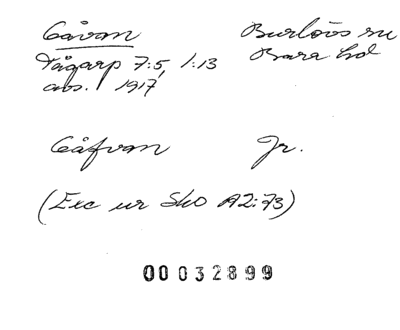 Gåvan Burlövs sn
Tågarp 7:5, 1:13 Bara hd
avs. 1917
Gåfvan Jr.
(Exc ur SkO A2:73)
00032899